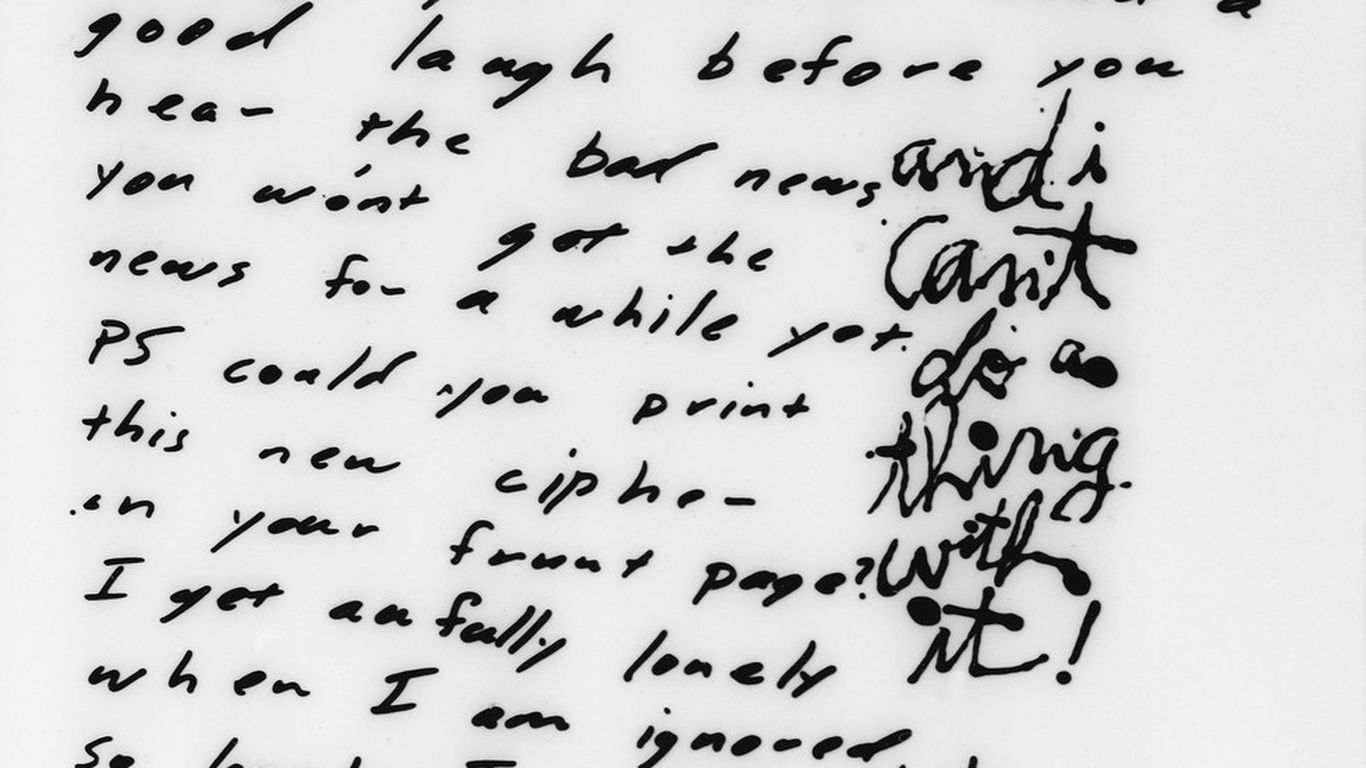 good laugh before you
hear the bad news
you won't get the
news for a while yet.
PS could you print
this new cipher
in your frunt page?
I get aufully lonely
when I am ignored
so lonely I
and i
can't
do a
thing
with
it!